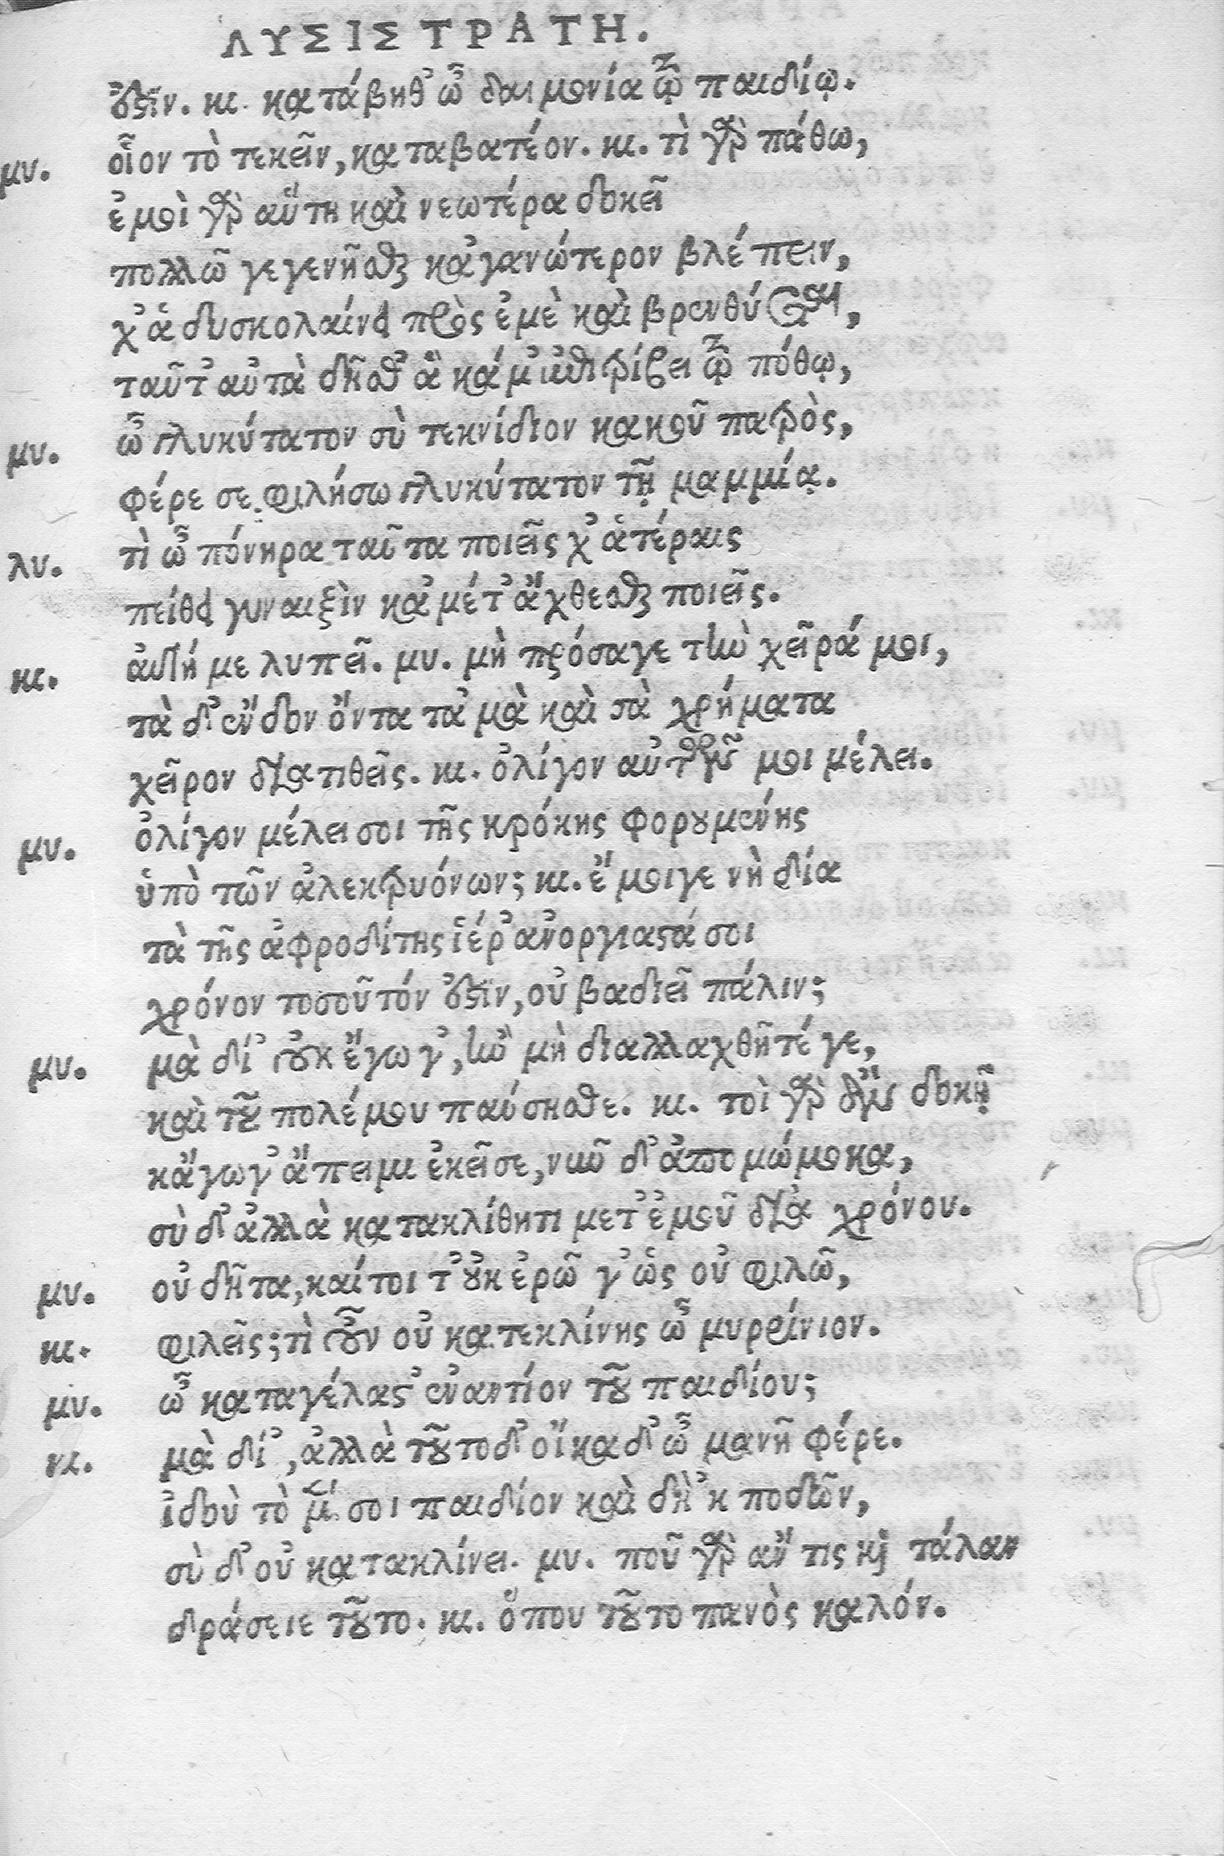 ΛΥΣΙΣΤΡΑΤΗ.
ὅϛιν. κι. κατάβηθ᾽ ὦ δαιμονία τῷ παιδίῳ.
μυ. οἷον τὸ τεκεῖν, καταβατέον. κι. τὶ γὰρ πάθω,
ἐμοὶ γὰρ αὕτη καὶ νεωτέρα δοκεῖ
πολλῶ γεγενῆσθαι κἀγανώτερον βλέπειν,
χ᾽ ἁ δυσκολαίνει πρὸς ἐμὲ καὶ βρενθύεται,
ταῦτ᾽ αὐτὰ δῆσθ᾽ ἃ κἀμ᾽ ἐπιτρίβει τῷ πόθῳ,
μυ. ὦ γλυκύτατον σὺ τεκνίδιον κακοῦ πατρὸς,
φέρε σε φιλήσω γλυκύτατον τῇ μαμμίᾳ.
λυ. τὶ ὦ πόνηρα ταῦτα ποιεῖς χ᾽ ἁτέραις
πείθει γυναιξὶν κἀμέ τ᾽ ἄχθεσθαι ποιεῖς.
κι. αὐτή με λυπεῖ. μυ. μὴ πρόσαγε τὴν χεῖρά μοι,
τὰ δ᾽ ἔνδον ὄντα τἀμὰ καὶ σὰ χρήματα
χεῖρον διατιθεῖς. κι. ὀλίγον αὐτῶν μοι μέλει.
μυ. ὀλίγον μέλει σοι τῆς κρόκης φορουμένης
ὑπὸ τῶν ἀλεκτρυόνων; κι. ἔμοιγε νὴ δία
τὰ τῆς ἀφροδίτης ἱέρ᾽ ἀνοργιαϛά σοι
χρόνον τοσοῦτόν ὅϛιν, οὐ βαδιεῖ πάλιν;
μυ. μὰ δί᾽ οὐκ ἔγωγ᾽, ἢν μὴ διαλλαχθῆτέ γε,
καὶ τοῦ πολέμου παύσησθε. κι. τοὶ γὰρ ἂν δοκῇ
κἄγωγ᾽ ἄπειμι ἐκεῖσε, νῦν δ᾽ ἀπομώμοκα,
σὺ δ᾽ ἀλλὰ κατακλίθητι μετ᾽ ἐμοῦ διὰ χρόνου.
μυ. οὐ δῆτα, καίτοι τ᾽ οὐκ ἐρῶ γ᾽ ὡς οὐ φιλῶ,
κι. φιλεῖς; τὶ οὖν οὐ κατεκλίνης ὦ μυρρίνιον.
μυ. ὦ καταγέλαϛ᾽ ἐναντίον τοῦ παιδίου;
κι. μὰ δί᾽, ἀλλὰ τοῦτο δ᾽ οἴκαδ᾽ ὦ μανῆ φέρε.
ἰδοὺ τὸ μέν σοι παιδίον καὶ δὴ ᾽κ ποδῶν,
σὺ δ᾽ οὐ κατακλίνει. μυ. ποῦ γὰρ ἄν τις καὶ τάλαν
δράσειε τοῦτο. κι. ὅπου τοῦτο πανὸς καλόν.